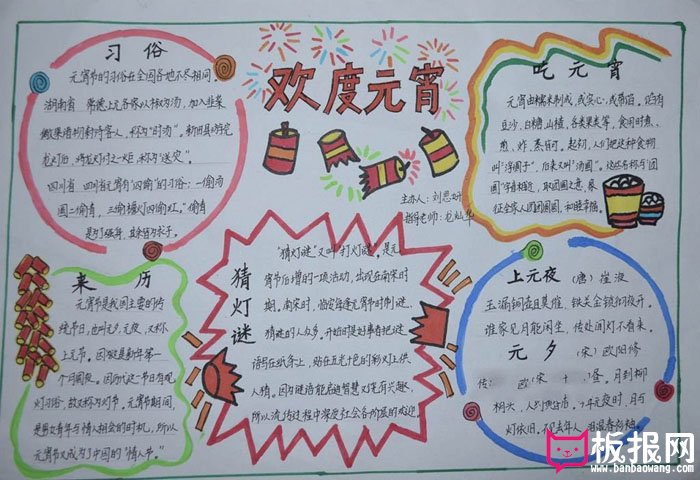 习俗
元宵节的习俗在全国各地不尽相同。
湖南省 常德上元各家以椒为汤，加入韭菜
招待客人，称为"时汤"。新田县
龙灯后，将龙灯付之一炬，称为"送灾"。
四川省 四川元宵有"四偷"的习俗：一偷汤
圆二偷青，三偷檐灯四偷红。"偷青
是为了强身，其余皆为求子。
欢度元宵
主办人：刘思妍
指导老师：
吃元宵
元宵由糯米制成，或实心，或带馅。馅有
豆沙、白糖、山楂、各类果类等，食用时煮、
煎、炸、蒸皆可。起初，人们把这种食物
叫"浮圆子"，后来又叫"汤圆"。这些名称与"团
圆"字音相近，取团圆之意，象
征全家人团团圆圆，和睦幸福。
来历
元宵节是我国主要的传
统节日，也叫元夕、元夜，又称
上元节，因为这是新年第一
个月圆夜。因历代这一节日有观
灯习俗，故又称为灯节。元宵节期间，
是男女青年与情人相会的时机，所以
元宵节又成为了中国的"情人节"。
猜灯谜
"猜灯谜"又叫"打灯谜"。是元
宵节后增的一项活动，出现在南宋时
期。南宋时，临安每逢元宵节时制谜，
猜谜的人众多。开始时是好事者把谜
语写在纸条上，贴在五光十色的彩灯上供
人猜。因为谜语能启迪智慧又饶有兴趣，
所以流传过程中深受社会各阶层的欢迎。
上元夜 （唐）崔液
玉漏铜壶且莫催，铁关金锁彻夜开。
谁家见月能闲坐，何处闻灯不看来。
元夕 （宋）欧阳修
传： 欧（宋 昼。月到柳
梢头，人约黄昏后。今年元夜时，月与
灯依旧。不见去年人，泪湿春衫袖。
板报网
www.banbaowang.com